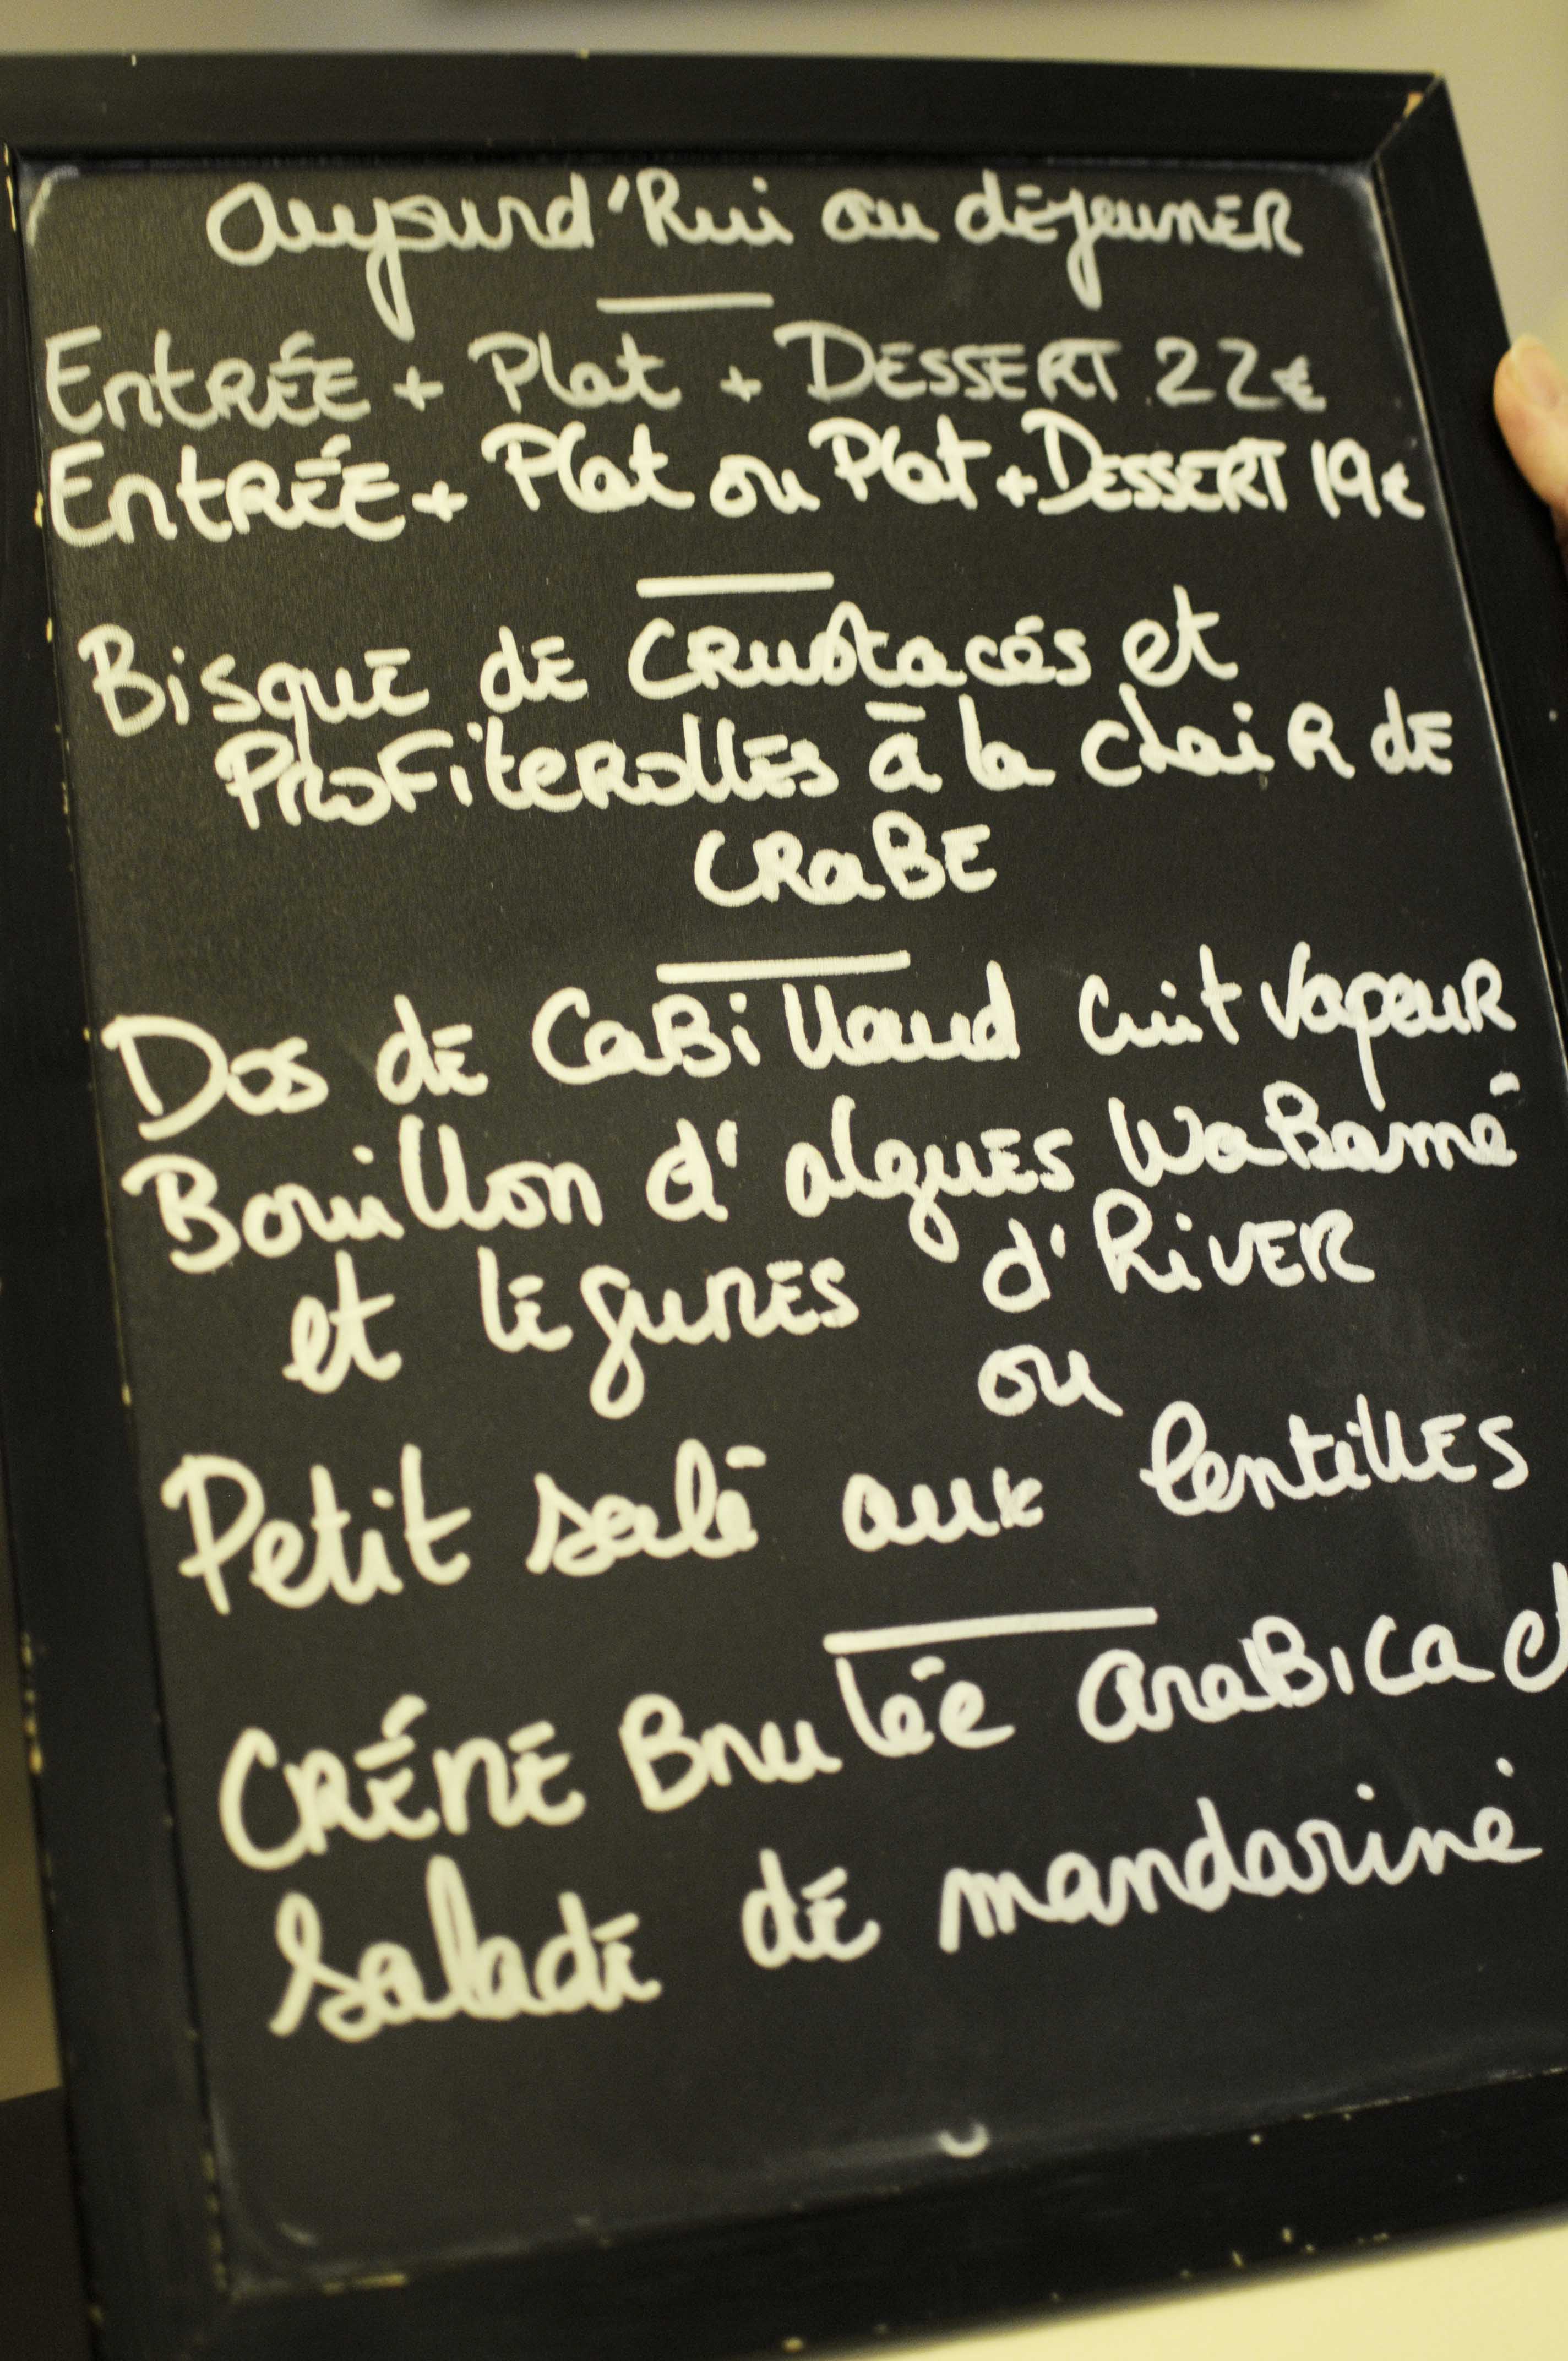 aujourd'hui au déjeuner
Entrée + Plat + Dessert 22€
Entrée + Plat ou Plat + Dessert 19€
Bisque de Crustacés et
Profiterolles à la chair de
Crabe
Dos de Cabillaud Cuit Vapeur
Bouillon d'algues Wakamé
et légumes d'hiver
ou
Petit salé aux lentilles
Crème Brulée arabica
salade de mandarine